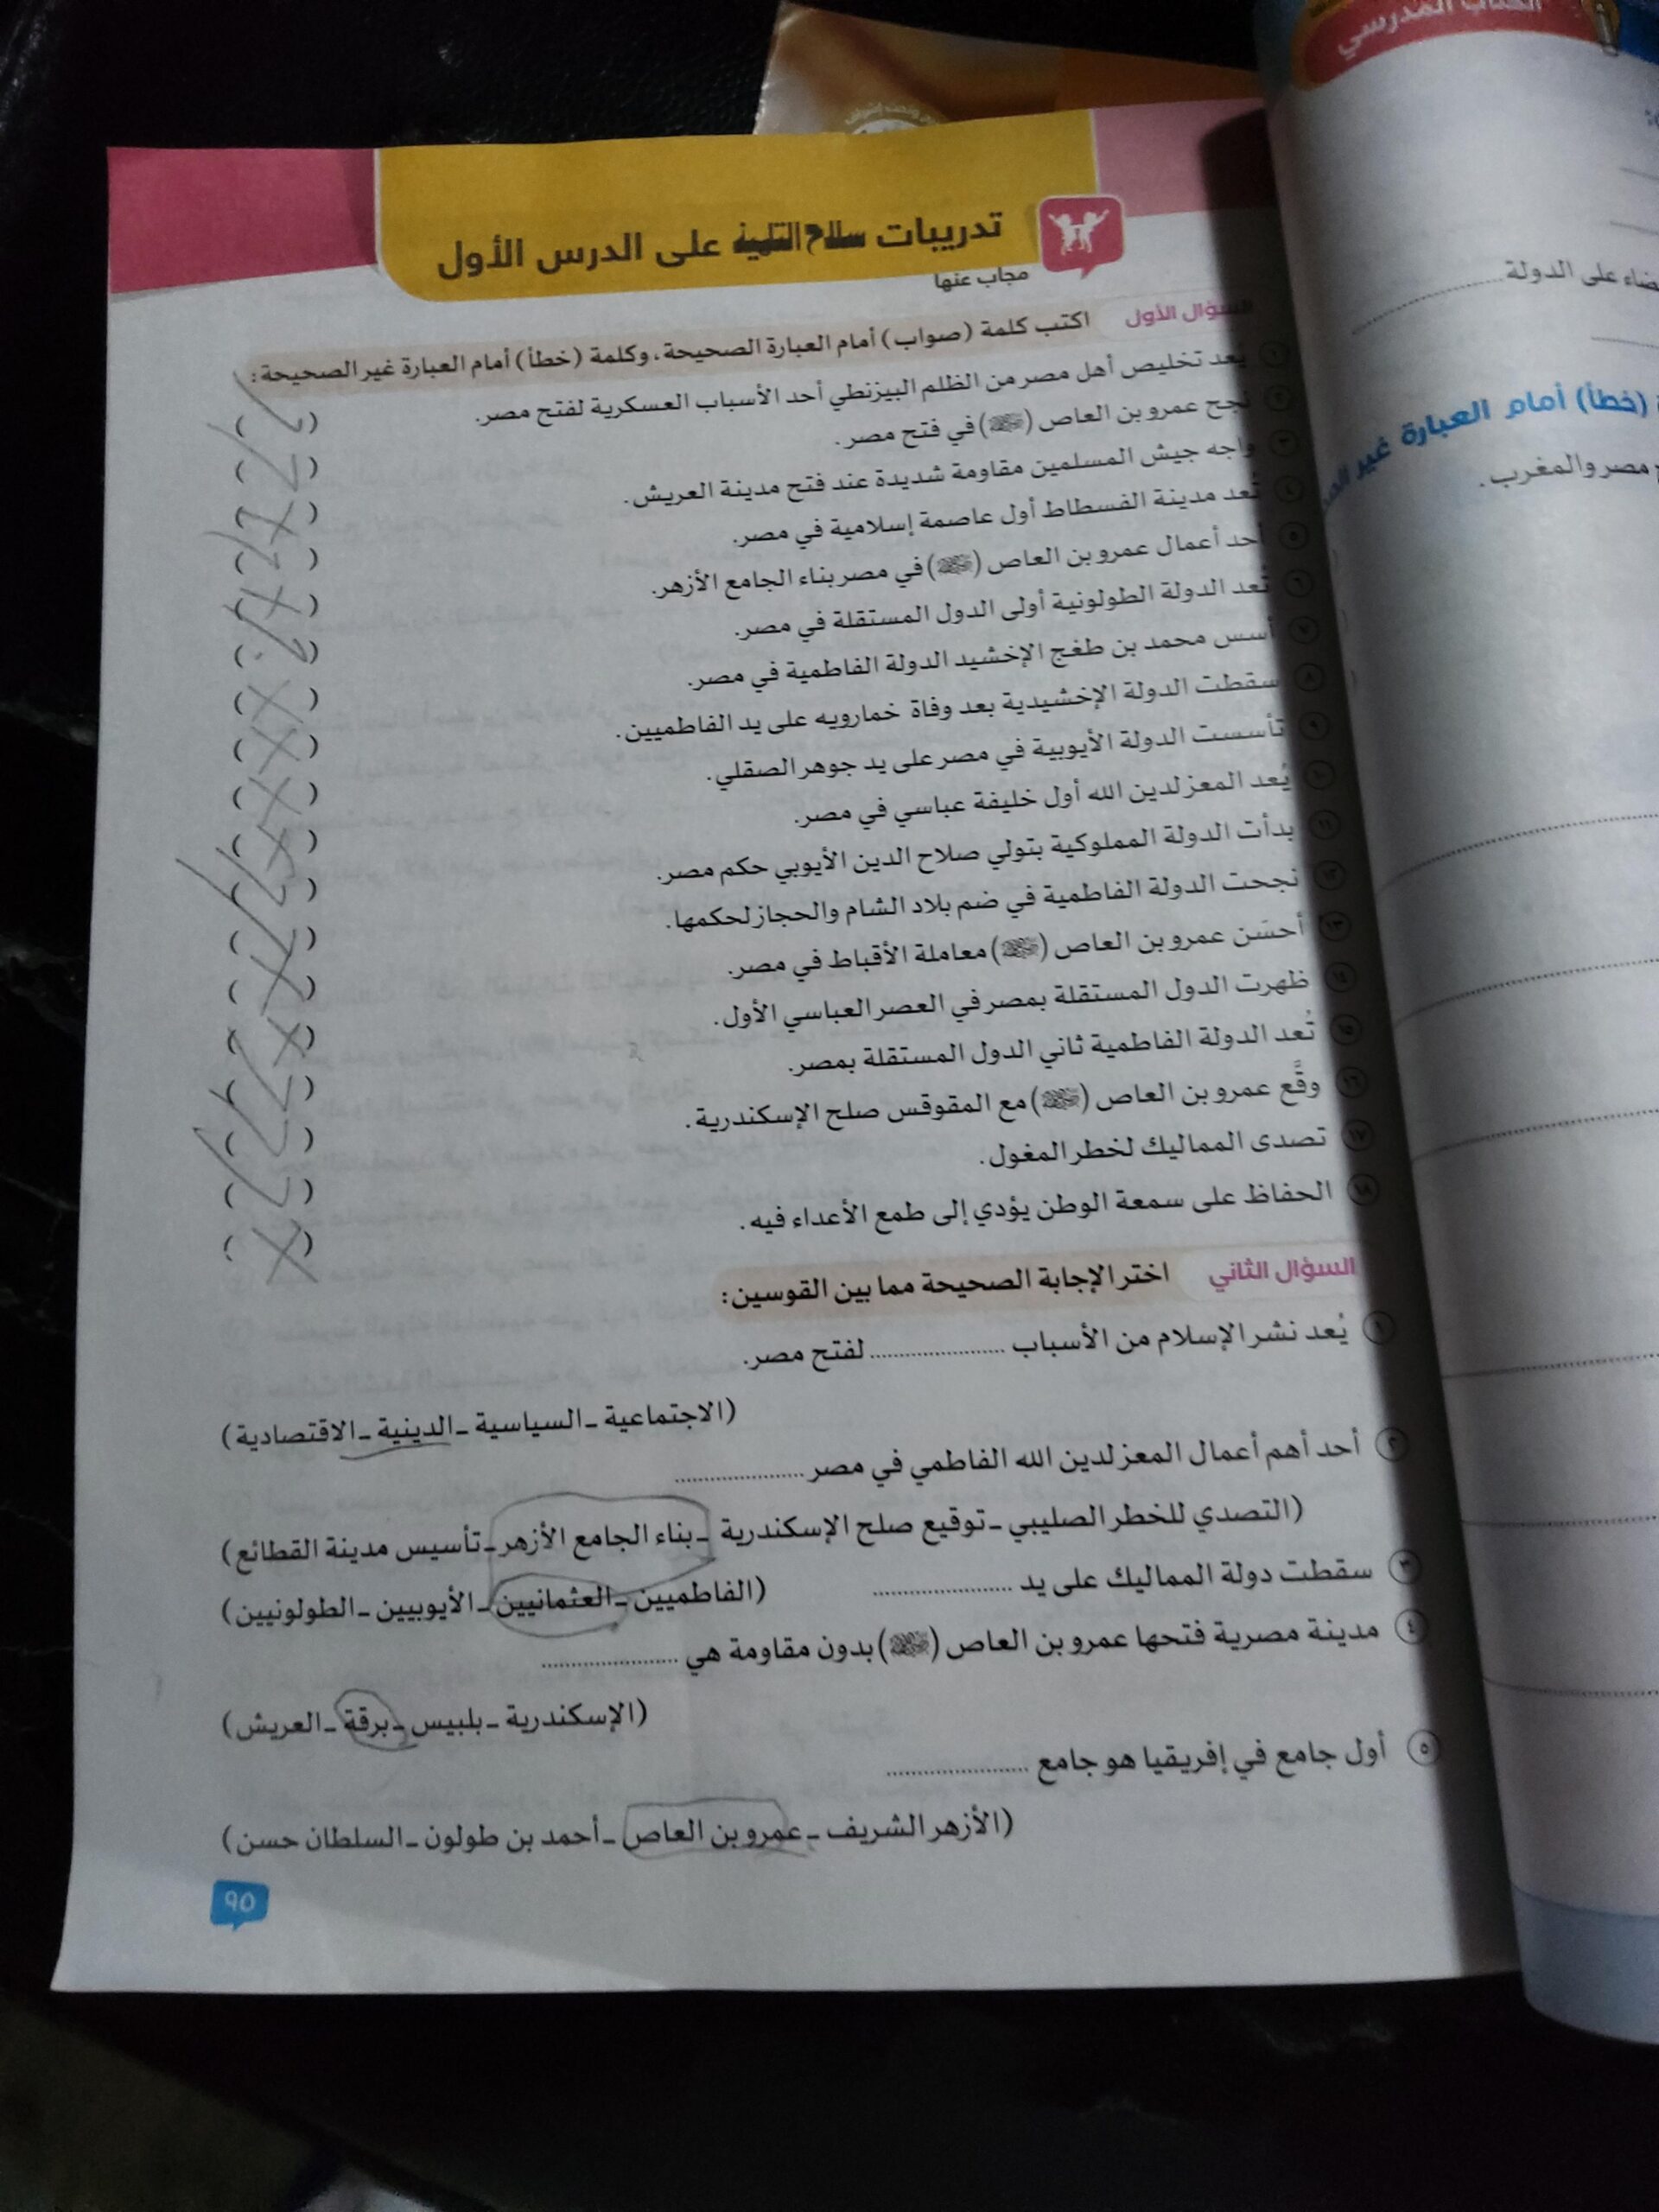 الكتاب المدرسي
تدريبات سلاح التلميذ على الدرس الأول
مجاب عنها
السؤال الأول اكتب كلمة (صواب) أمام العبارة الصحيحة، وكلمة (خطأ) أمام العبارة غير الصحيحة:
١ يُعد تخليص أهل مصر من الظلم البيزنطي أحد الأسباب العسكرية لفتح مصر. ( )
٢ نجح عمرو بن العاص (رضي الله عنه) في فتح مصر. ( )
٣ واجه جيش المسلمين مقاومة شديدة عند فتح مدينة العريش. ( )
٤ تُعد مدينة الفسطاط أول عاصمة إسلامية في مصر. ( )
٥ أحد أعمال عمرو بن العاص (رضي الله عنه) في مصر بناء الجامع الأزهر. ( )
٦ تُعد الدولة الطولونية أولى الدول المستقلة في مصر. ( )
٧ أسس محمد بن طغج الإخشيد الدولة الفاطمية في مصر. ( )
٨ سقطت الدولة الإخشيدية بعد وفاة خمارويه على يد الفاطميين. ( )
٩ تأسست الدولة الأيوبية في مصر على يد جوهر الصقلي. ( )
١٠ يُعد المعز لدين الله أول خليفة عباسي في مصر. ( )
١١ بدأت الدولة المملوكية بتولي صلاح الدين الأيوبي حكم مصر. ( )
١٢ نجحت الدولة الفاطمية في ضم بلاد الشام والحجاز لحكمها. ( )
١٣ أحسَن عمرو بن العاص (رضي الله عنه) معاملة الأقباط في مصر. ( )
١٤ ظهرت الدول المستقلة بمصر في العصر العباسي الأول. ( )
١٥ تُعد الدولة الفاطمية ثاني الدول المستقلة بمصر. ( )
١٦ وقَّع عمرو بن العاص (رضي الله عنه) مع المقوقس صلح الإسكندرية. ( )
١٧ تصدى المماليك لخطر المغول. ( )
١٨ الحفاظ على سمعة الوطن يؤدي إلى طمع الأعداء فيه. ( )
السؤال الثاني اختر الإجابة الصحيحة مما بين القوسين:
١ يُعد نشر الإسلام من الأسباب ........ لفتح مصر.
(الاجتماعية - السياسية - الدينية - الاقتصادية)
٢ أحد أهم أعمال المعز لدين الله الفاطمي في مصر ........
(التصدي للخطر الصليبي - توقيع صلح الإسكندرية - بناء الجامع الأزهر - تأسيس مدينة القطائع)
٣ سقطت دولة المماليك على يد ........ (الفاطميين - العثمانيين - الأيوبيين - الطولونيين)
٤ مدينة مصرية فتحها عمرو بن العاص (رضي الله عنه) بدون مقاومة هي ........
(الإسكندرية - بلبيس - برقة - العريش)
٥ أول جامع في إفريقيا هو جامع ........
(الأزهر الشريف - عمرو بن العاص - أحمد بن طولون - السلطان حسن)
٩٥
على الدولة
(خطأ) أمام العبارة غير
مصر والمغرب.